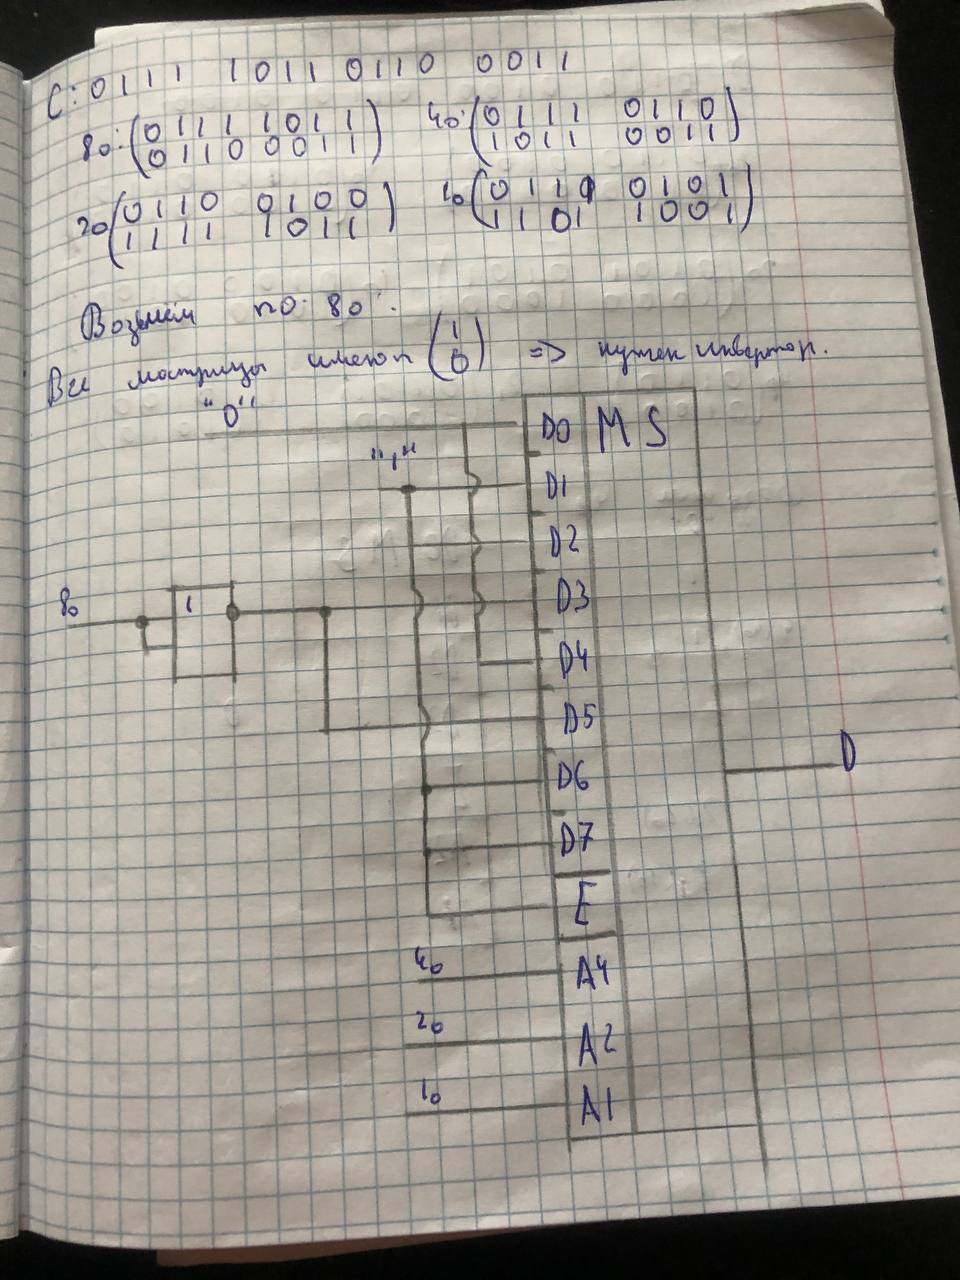 C: 0111 1011 0110 0011
80: (0 1 1 1 1 0 1 1) 40: (0 1 1 1 0 1 1 0)
(0 1 1 0 0 0 1 1) (1 0 1 1 0 0 1 1)
20 (0 1 1 0 0 1 0 0) 10 (0 1 1 0 0 1 0 1)
(1 1 1 1 1 0 1 1) (1 1 0 1 1 0 0 1)
Возьмём по 80.
Все матрицы имеют (1 0) => нужен инвертор.
"0"
"1"
80
1
D0 MS
D1
D2
D3
D4
D5
D6
D7
E
40 A4
20 A2
10 A1
D